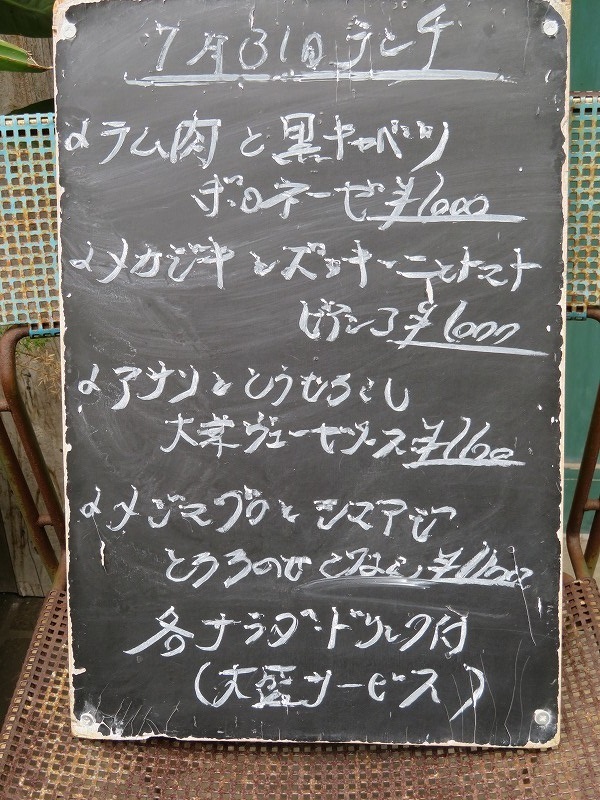 7月31日ランチ
ラム肉と黒キャベツ
ボロネーゼ ¥1000
メカジキとズッキーニとトマト
ビアンコ ¥1000
アナゴととうもろこし
大葉ジェノベーゼソース ¥1100
メジマグロとシマアジ
とろろのせ ごはん ¥1100
各サラダ・ドリンク付
(大盛サービス)